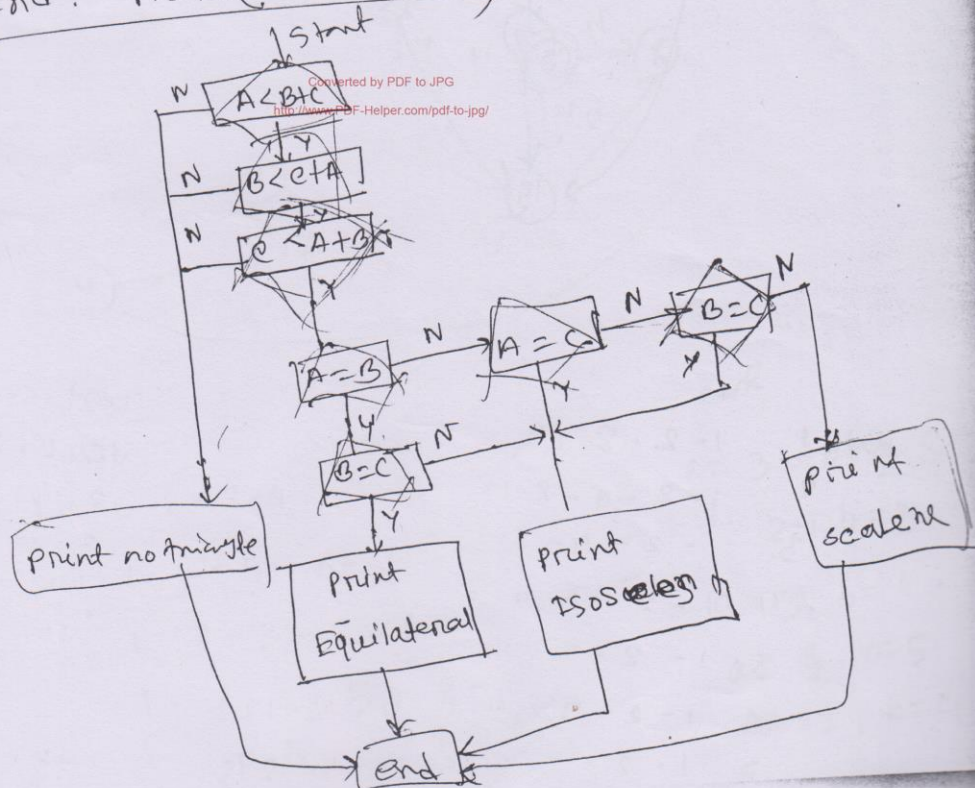 Start
Converted by PDF to JPG
http://www.PDF-Helper.com/pdf-to-jpg/
N
A < B+C
Y
N
B < C+A
Y
N
C < A+B
Y
A = B
N
A = C
N
B = C
N
Y
Y
Y
B = C
N
Y
print no triangle
print
Equilateral
print
Isosceles
print
scalene
end